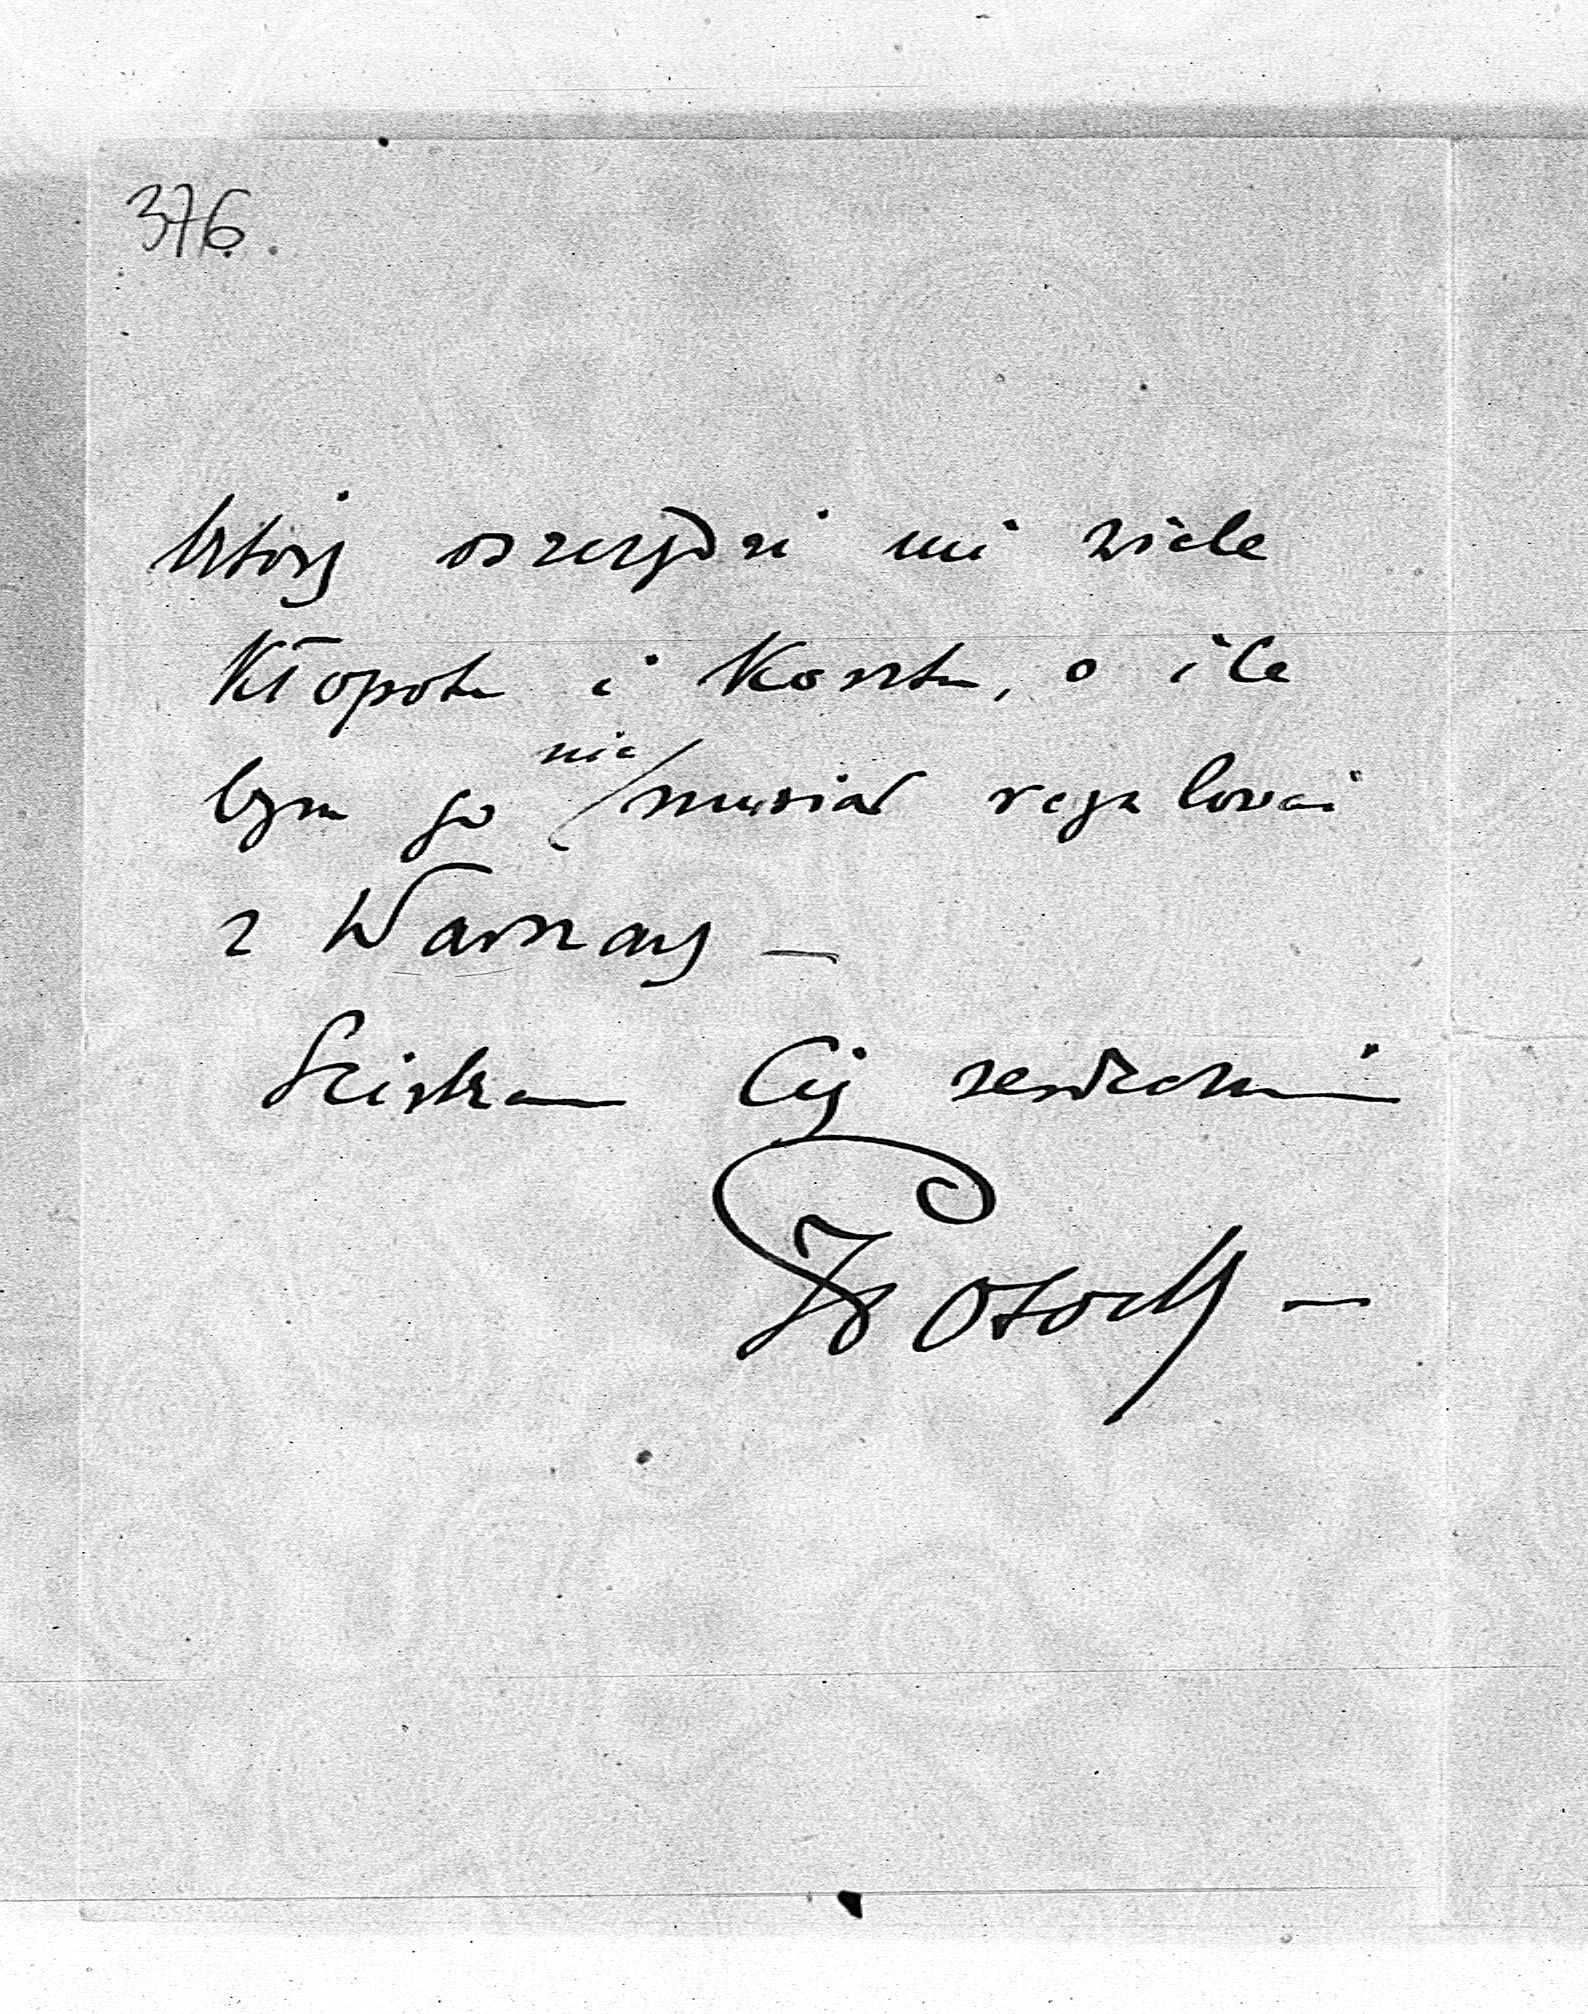 376.
który oszczędzi mi wiele
kłopotu i kosztu, o ile
bym go nie musiał regulować
z Warszawy —
Ściskam Cię serdecznie
Potocki —